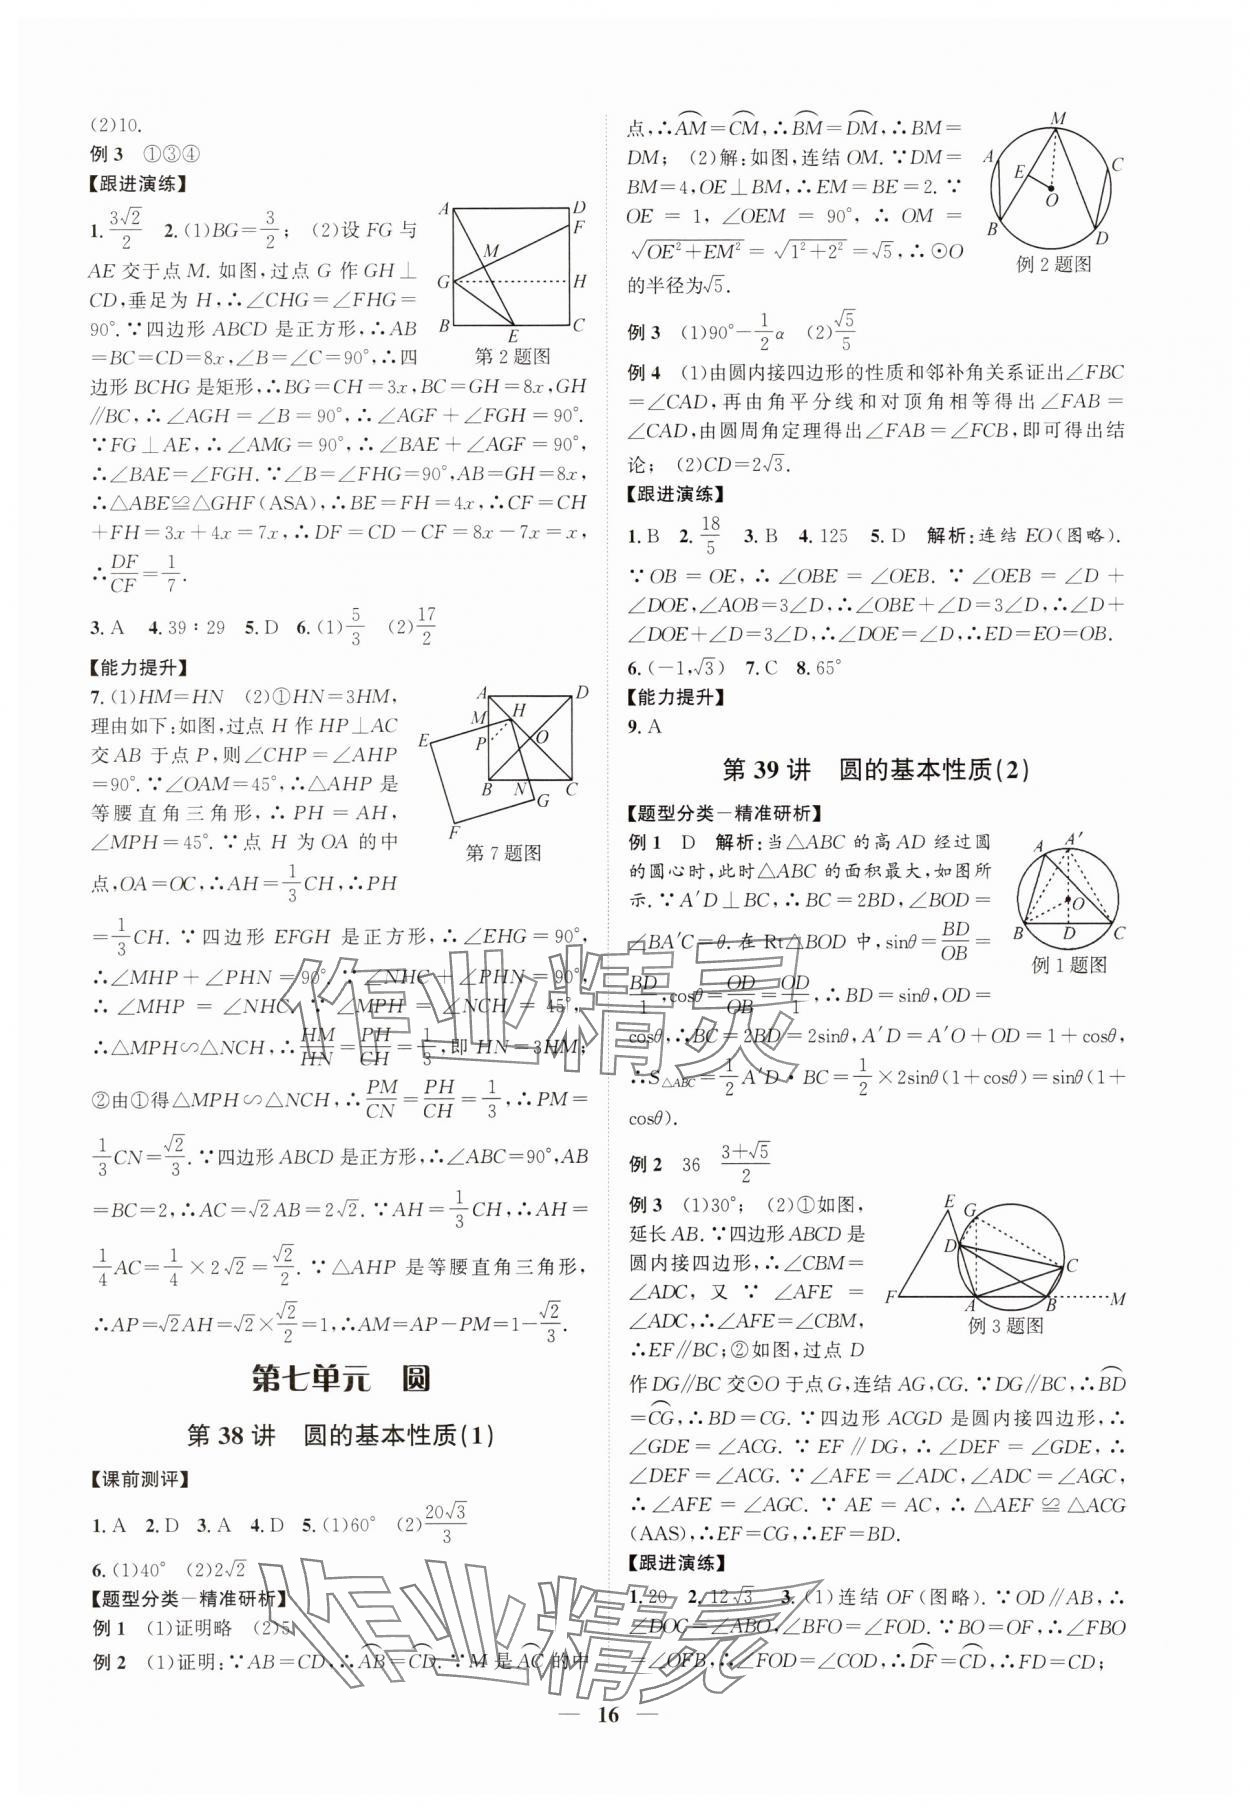 (2)10.
例 3　①③④
【跟进演练】
1. 3√2/2　2. (1)BG=3/2；(2)设 FG 与
AE 交于点 M. 如图,过点 G 作 GH⊥
CD,垂足为 H,∴∠CHG=∠FHG=
90°.∵四边形 ABCD 是正方形,∴AB
=BC=CD=8x,∠B=∠C=90°,∴四
边形 BCHG 是矩形,∴BG=CH=3x,BC=GH=8x,GH
∥BC,∴∠AGH=∠B=90°,∴∠AGF+∠FGH=90°.
∵FG⊥AE,∴∠AMG=90°,∴∠BAE+∠AGF=90°,
∴∠BAE=∠FGH.∵∠B=∠FHG=90°,AB=GH=8x,
∴△ABE≌△GHF(ASA),∴BE=FH=4x,∴CF=CH
+FH=3x+4x=7x,∴DF=CD-CF=8x-7x=x,
∴DF/CF=1/7.
A D F M G H B E C
第 2 题图
3. A　4. 39∶29　5. D　6. (1)5/3　(2)17/2
【能力提升】
7. (1)HM=HN　(2)①HN=3HM,
理由如下:如图,过点 H 作 HP⊥AC
交 AB 于点 P,则∠CHP=∠AHP
=90°.∵∠OAM=45°,∴△AHP 是
等腰直角三角形,∴PH=AH,
∠MPH=45°.∵点 H 为 OA 的中
点,OA=OC,∴AH=1/3CH,∴PH
A D M H E P O B N C G F
第 7 题图
=1/3CH.∵四边形 EFGH 是正方形,∴∠EHG=90°,
∴∠MHP+∠PHN=90°.∵∠NHC+∠PHN=90°,
∴∠MHP=∠NHC.∵∠MPH=∠NCH=45°,
∴△MPH∽△NCH,∴HM/HN=PH/CH=1/3,即 HN=3HM;
②由①得△MPH∽△NCH,∴PM/CN=PH/CH=1/3,∴PM=
1/3CN=√2/3.∵四边形 ABCD 是正方形,∴∠ABC=90°,AB
=BC=2,∴AC=√2AB=2√2.∵AH=1/3CH,∴AH=
1/4AC=1/4×2√2=√2/2.∵△AHP 是等腰直角三角形,
∴AP=√2AH=√2×√2/2=1,∴AM=AP-PM=1-√2/3.
第七单元　圆
第 38 讲　圆的基本性质(1)
【课前测评】
1. A　2. D　3. A　4. D　5. (1)60°　(2)20√3/3
6. (1)40°　(2)2√2
【题型分类—精准研析】
例 1　(1)证明略　(2)5
例 2　(1)证明:∵AB=CD,∴A͡B=C͡D.∵M 是A͡C的中
点,∴A͡M=C͡M,∴B͡M=D͡M,∴BM=
DM；(2)解:如图,连结 OM.∵DM=
BM=4,OE⊥BM,∴EM=BE=2.∵
OE=1,∠OEM=90°,∴OM=
√(OE²+EM²)=√(1²+2²)=√5,∴⊙O
的半径为√5.
M A C E O B D
例 2 题图
例 3　(1)90°-1/2α　(2)√5/5
例 4　(1)由圆内接四边形的性质和邻补角关系证出∠FBC
=∠CAD,再由角平分线和对顶角相等得出∠FAB=
∠CAD,由圆周角定理得出∠FAB=∠FCB,即可得出结
论；(2)CD=2√3.
【跟进演练】
1. B　2. 18/5　3. B　4. 125　5. D　解析:连结 EO(图略).
∵OB=OE,∴∠OBE=∠OEB.∵∠OEB=∠D+
∠DOE,∠AOB=3∠D,∴∠OBE+∠D=3∠D,∴∠D+
∠DOE+∠D=3∠D,∴∠DOE=∠D,∴ED=EO=OB.
6. (-1,√3)　7. C　8. 65°
【能力提升】
9. A
第 39 讲　圆的基本性质(2)
【题型分类—精准研析】
例 1　D　解析:当△ABC 的高 AD 经过圆
的圆心时,此时△ABC 的面积最大,如图所
示.∵A′D⊥BC,∴BC=2BD,∠BOD=
∠BA′C=θ.在 Rt△BOD 中,sinθ=BD/OB=
BD/1,cosθ=OD/OB=OD/1,∴BD=sinθ,OD=
A A′ O B D C
例 1 题图
cosθ,∴BC=2BD=2sinθ,A′D=A′O+OD=1+cosθ,
∴S△ABC=1/2A′D·BC=1/2×2sinθ(1+cosθ)=sinθ(1+
cosθ).
例 2　36　(3+√5)/2
例 3　(1)30°；(2)①如图,
延长 AB.∵四边形 ABCD 是
圆内接四边形,∴∠CBM=
∠ADC,又∵∠AFE=
∠ADC,∴∠AFE=∠CBM,
∴EF∥BC;②如图,过点 D
E G D C F A B M
例 3 题图
作 DG∥BC 交⊙O 于点 G,连结 AG,CG.∵DG∥BC,∴B͡D
=C͡G,∴BD=CG.∵四边形 ACGD 是圆内接四边形,∴
∠GDE=∠ACG.∵EF∥DG,∴∠DEF=∠GDE,∴
∠DEF=∠ACG.∵∠AFE=∠ADC,∠ADC=∠AGC,
∴∠AFE=∠AGC.∵AE=AC,∴△AEF≌△ACG
(AAS),∴EF=CG,∴EF=BD.
【跟进演练】
1. 20　2. 12√3　3. (1)连结 OF(图略).∵OD∥AB,∴
∠DOC=∠ABO,∠BFO=∠FOD.∵BO=OF,∴∠FBO
=∠OFB,∴∠FOD=∠COD,∴D͡F=C͡D,∴FD=CD;
16
作业精灵
作业精灵